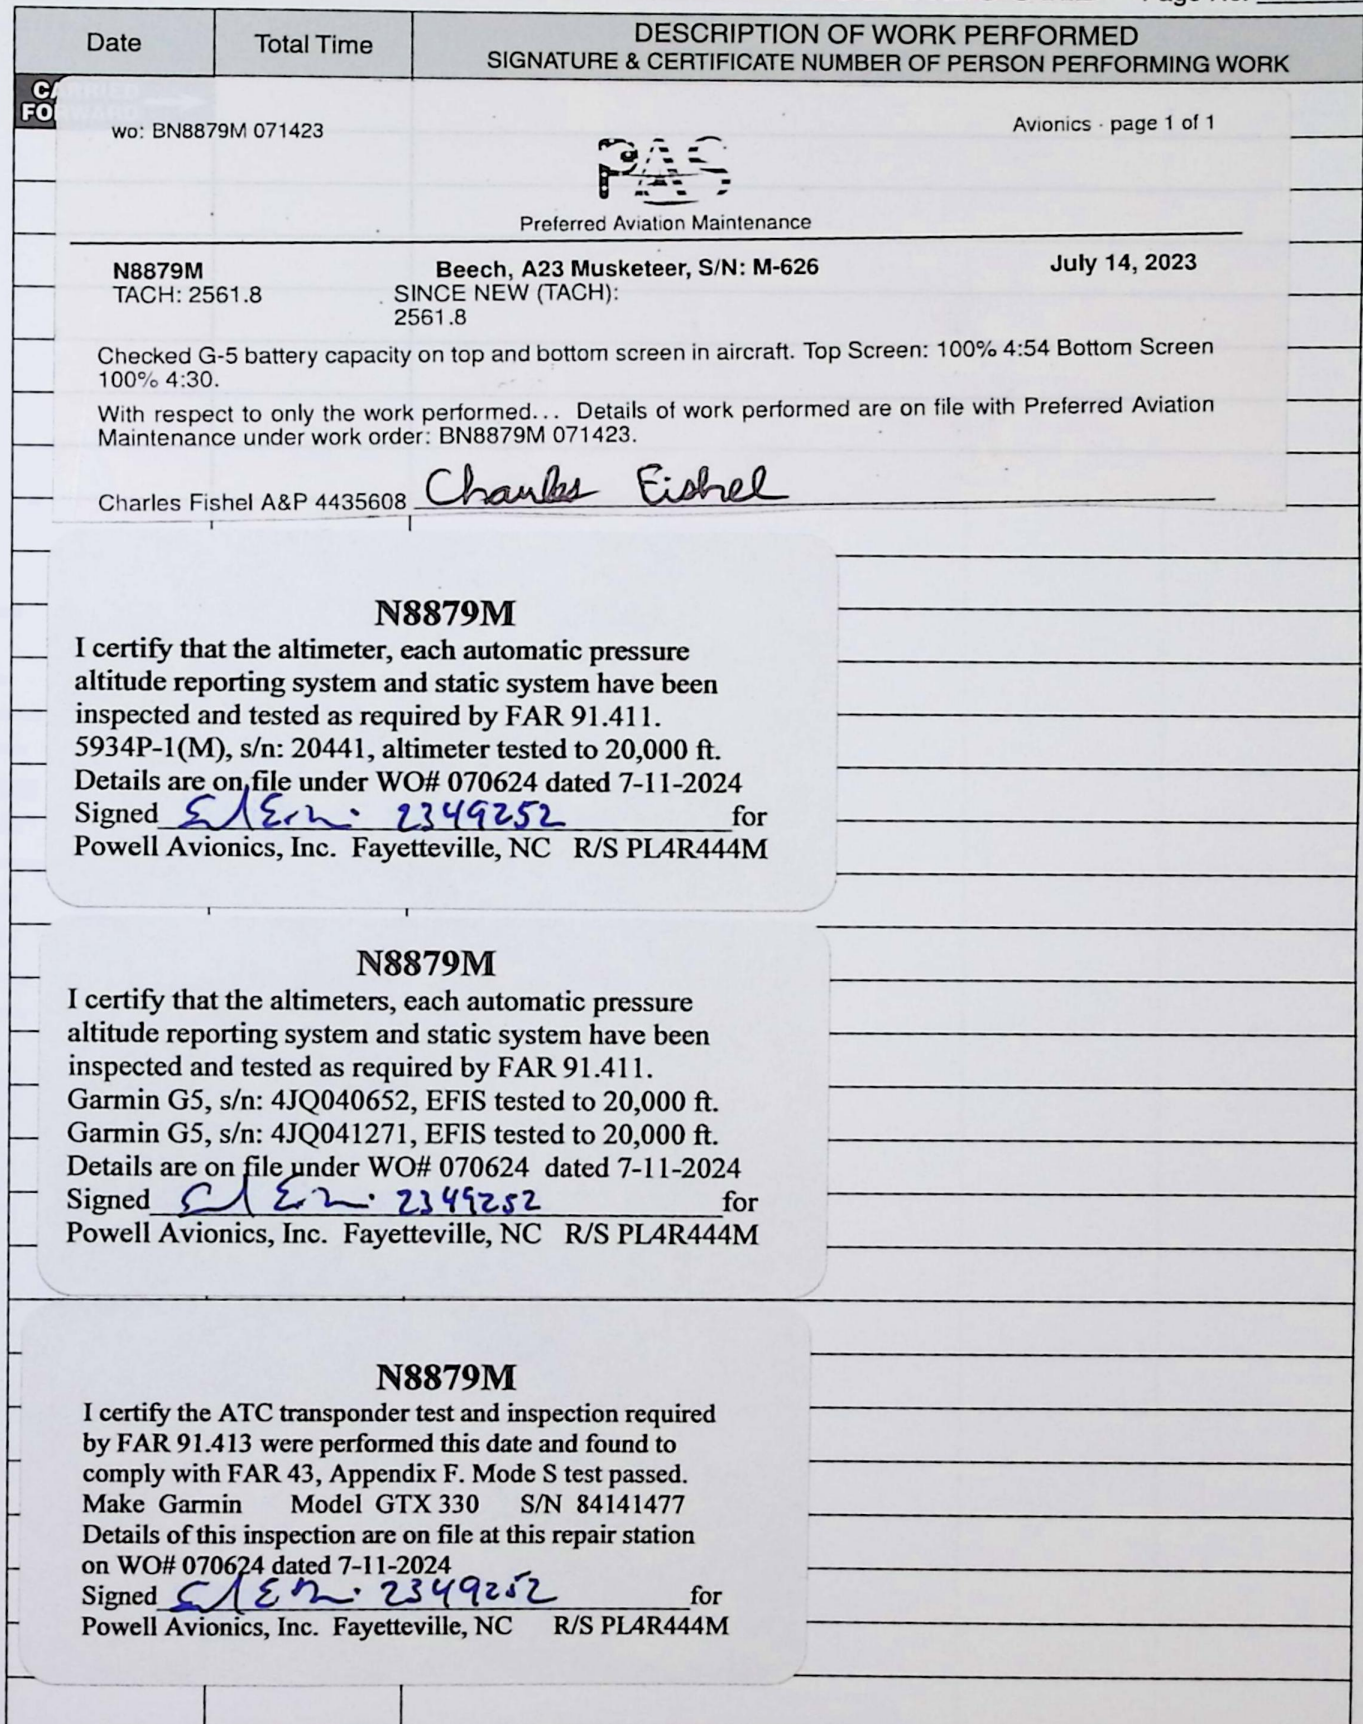 Date Total Time DESCRIPTION OF WORK PERFORMED
SIGNATURE & CERTIFICATE NUMBER OF PERSON PERFORMING WORK
CARRIED
FORWARD
wo: BN8879M 071423 Avionics - page 1 of 1
PAS
Preferred Aviation Maintenance
N8879M Beech, A23 Musketeer, S/N: M-626 July 14, 2023
TACH: 2561.8 SINCE NEW (TACH):
2561.8
Checked G-5 battery capacity on top and bottom screen in aircraft. Top Screen: 100% 4:54 Bottom Screen
100% 4:30.
With respect to only the work performed... Details of work performed are on file with Preferred Aviation
Maintenance under work order: BN8879M 071423.
Charles Fishel A&P 4435608 Charles Fishel
N8879M
I certify that the altimeter, each automatic pressure
altitude reporting system and static system have been
inspected and tested as required by FAR 91.411.
5934P-1(M), s/n: 20441, altimeter tested to 20,000 ft.
Details are on file under WO# 070624 dated 7-11-2024
Signed 2349252 for
Powell Avionics, Inc. Fayetteville, NC R/S PL4R444M
N8879M
I certify that the altimeters, each automatic pressure
altitude reporting system and static system have been
inspected and tested as required by FAR 91.411.
Garmin G5, s/n: 4JQ040652, EFIS tested to 20,000 ft.
Garmin G5, s/n: 4JQ041271, EFIS tested to 20,000 ft.
Details are on file under WO# 070624 dated 7-11-2024
Signed 2349252 for
Powell Avionics, Inc. Fayetteville, NC R/S PL4R444M
N8879M
I certify the ATC transponder test and inspection required
by FAR 91.413 were performed this date and found to
comply with FAR 43, Appendix F. Mode S test passed.
Make Garmin Model GTX 330 S/N 84141477
Details of this inspection are on file at this repair station
on WO# 070624 dated 7-11-2024
Signed 2349252 for
Powell Avionics, Inc. Fayetteville, NC R/S PL4R444M